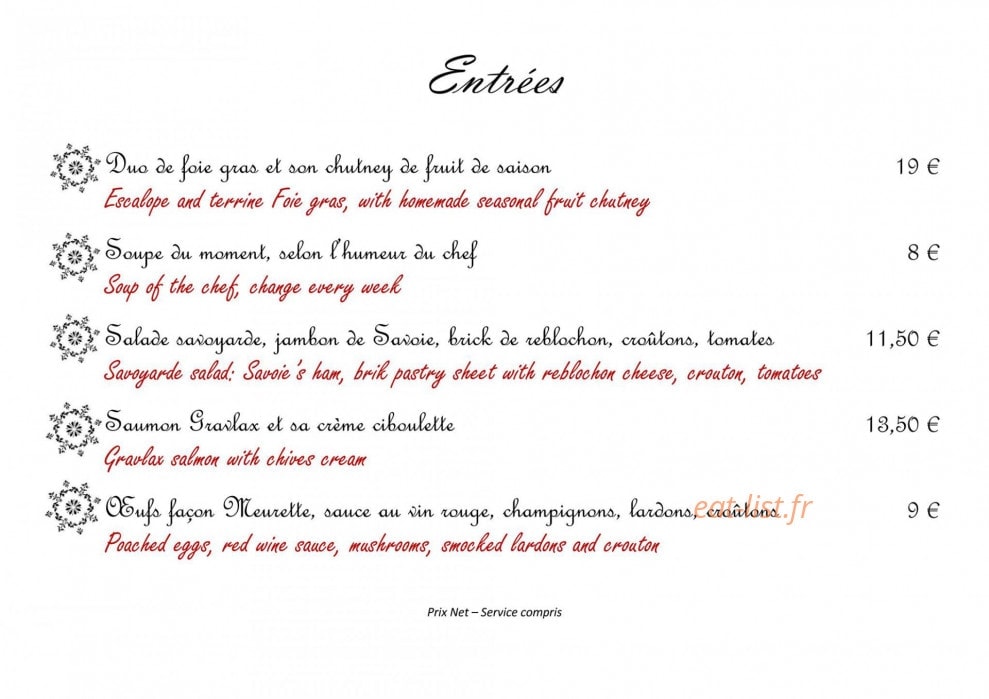 Entrées
Duo de foie gras et son chutney de fruit de saison 19 €
Escalope and terrine Foie gras, with homemade seasonal fruit chutney
Soupe du moment, selon l'humeur du chef 8 €
Soup of the chef, change every week
Salade savoyarde, jambon de Savoie, brick de reblochon, croûtons, tomates 11,50 €
Savoyarde salad: Savoie's ham, brik pastry sheet with reblochon cheese, crouton, tomatoes
Saumon Gravlax et sa crème ciboulette 13,50 €
Gravlax salmon with chives cream
Œufs façon Meurette, sauce au vin rouge, champignons, lardons, croûtons 9 €
eat-list.fr
Poached eggs, red wine sauce, mushrooms, smocked lardons and crouton
Prix Net – Service compris